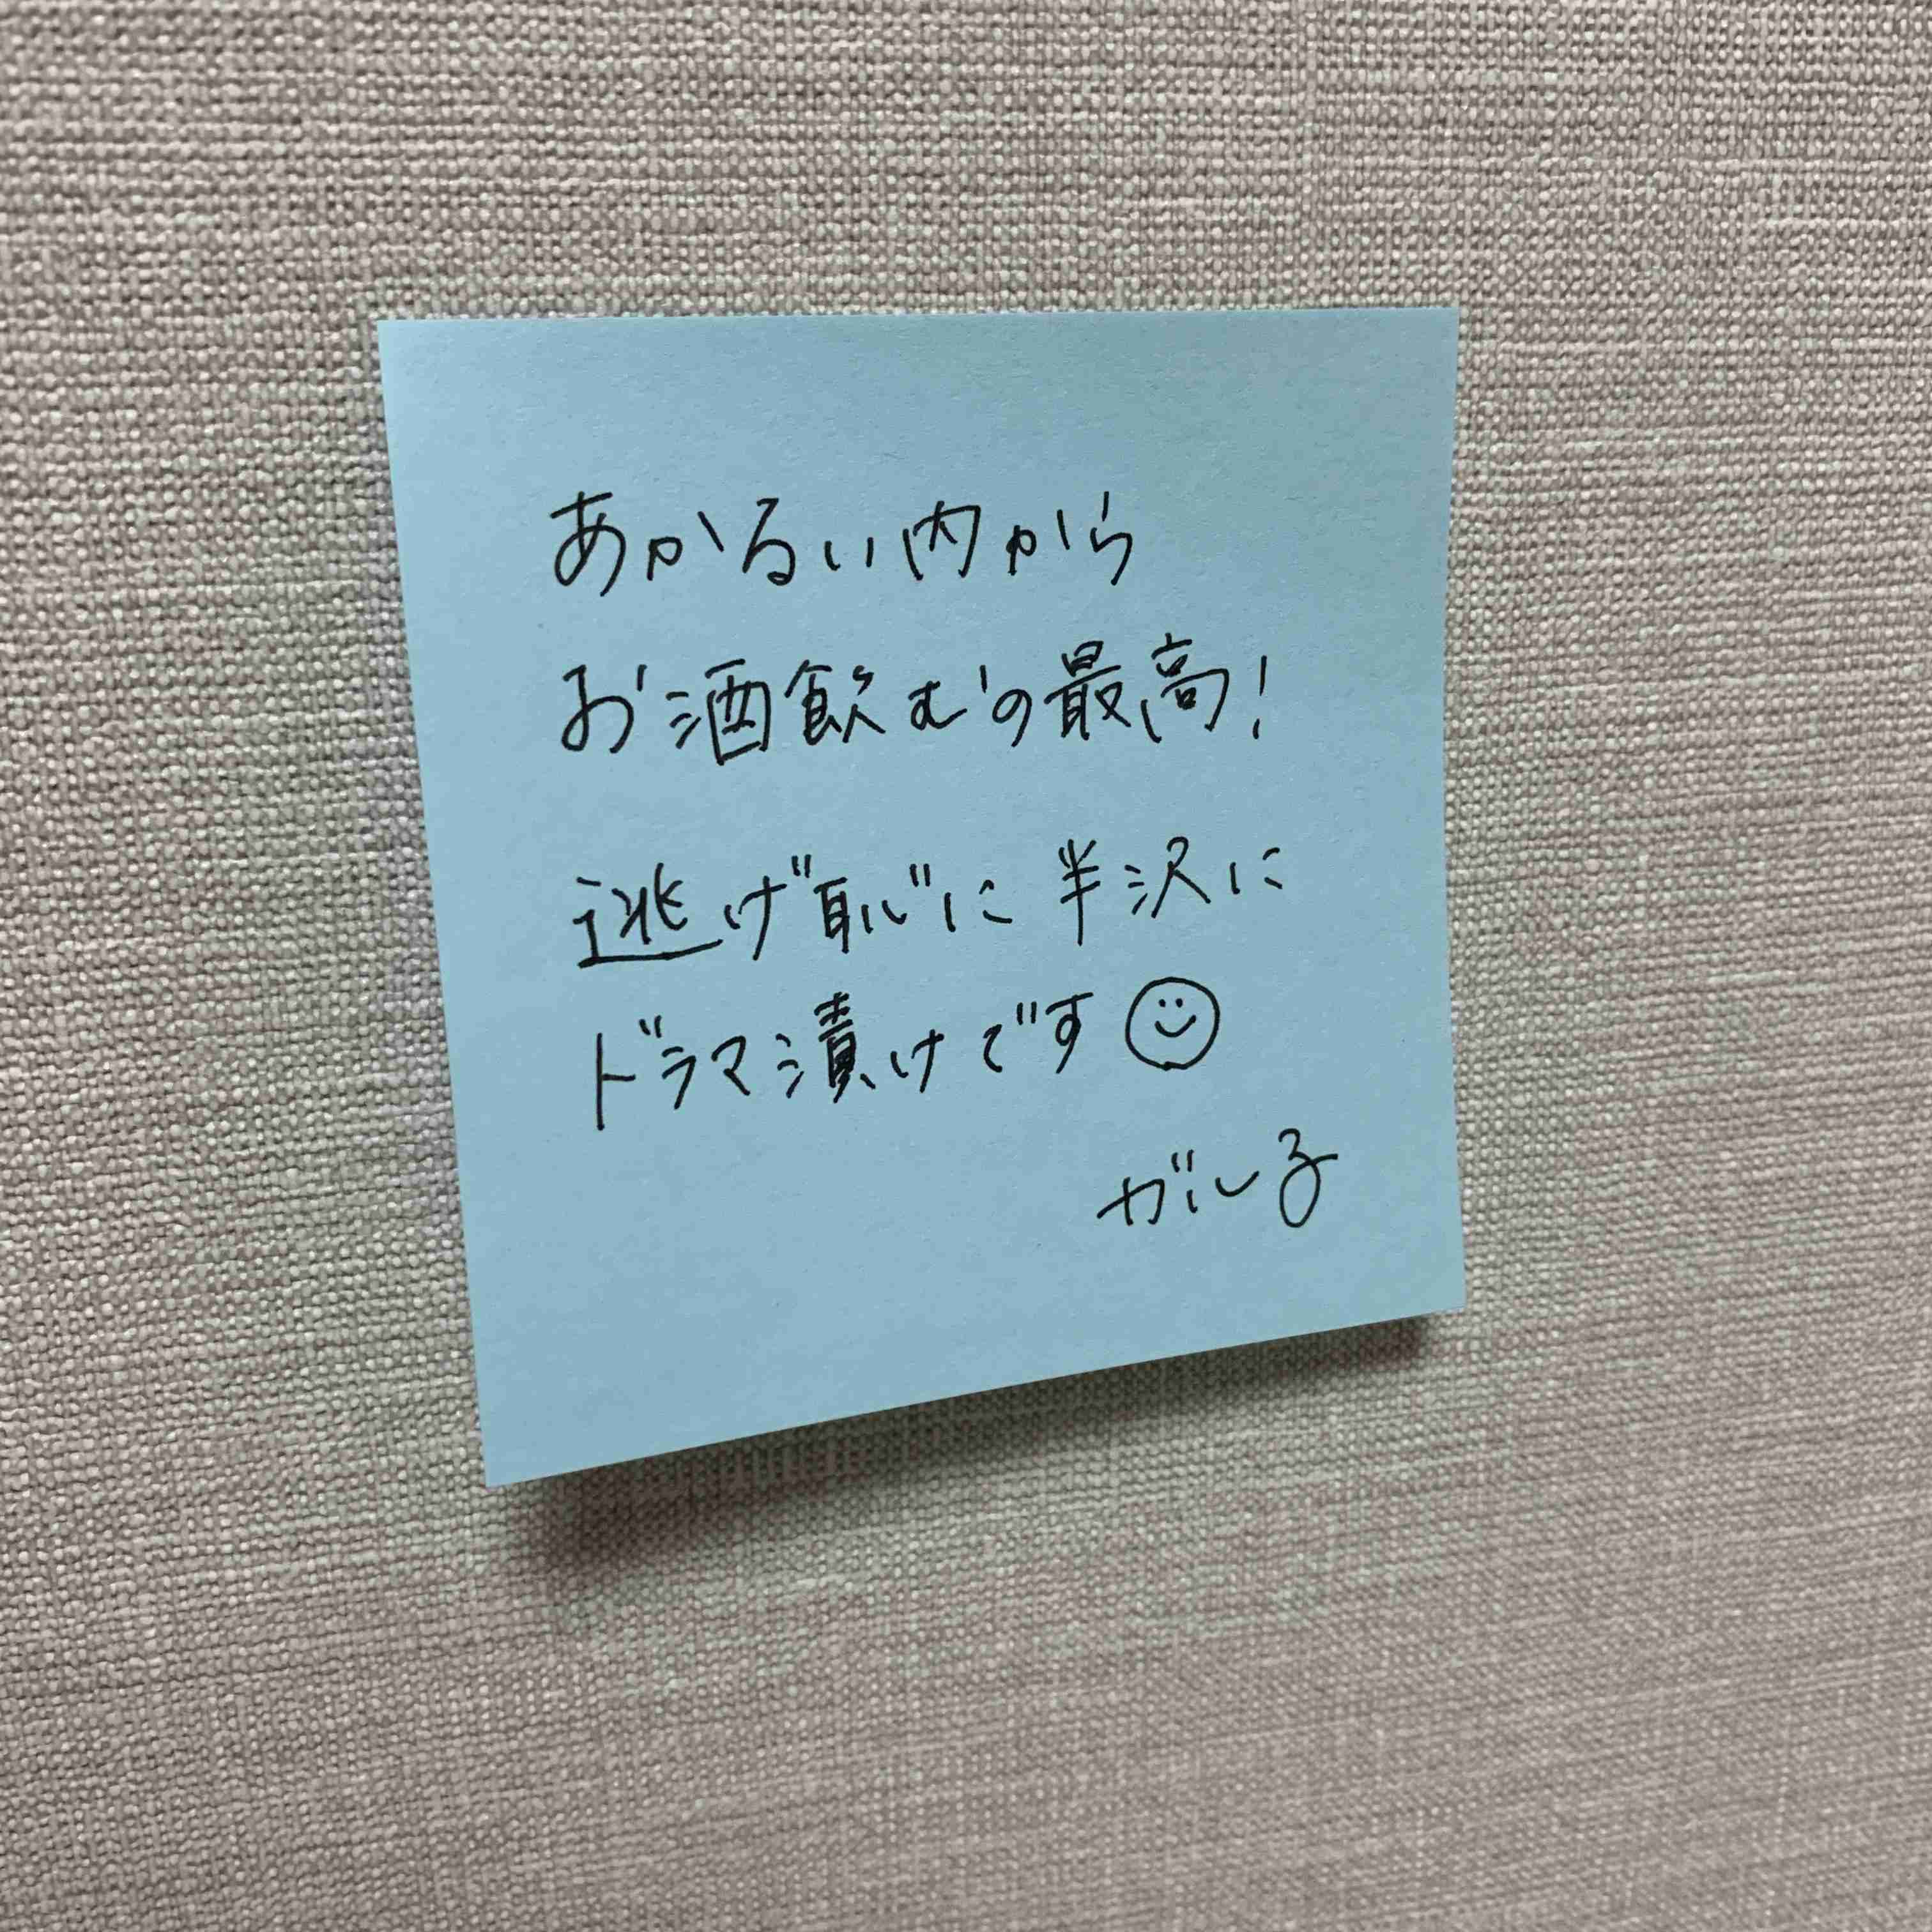 あかるい内から
お酒飲むの最高!
逃げ恥に半沢に
ドラマ漬けです☺
がし子